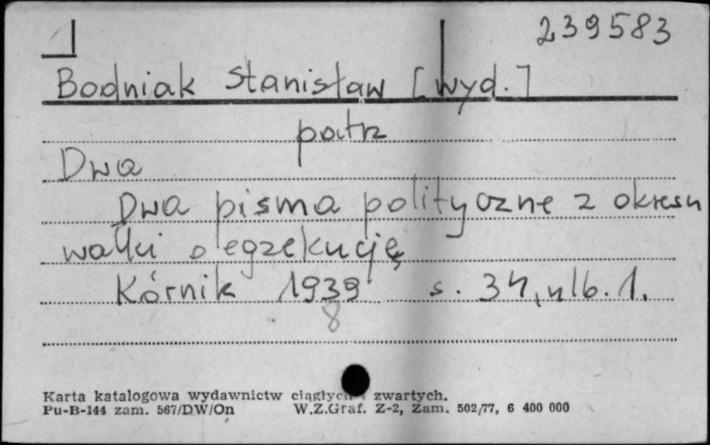 1
239583
Bodniak Stanisław [wyd.]
patrz
Dwa
Dwa pisma polityczne z okresu
walki o egzekucję
Kórnik 1939 s. 34, nlb. 1.
8
Karta katalogowa wydawnictw ciągłych i zwartych.
Pu-B-144 zam. 567/DW/On W.Z.Graf. Z-2, Zam. 502/77, 6 400 000